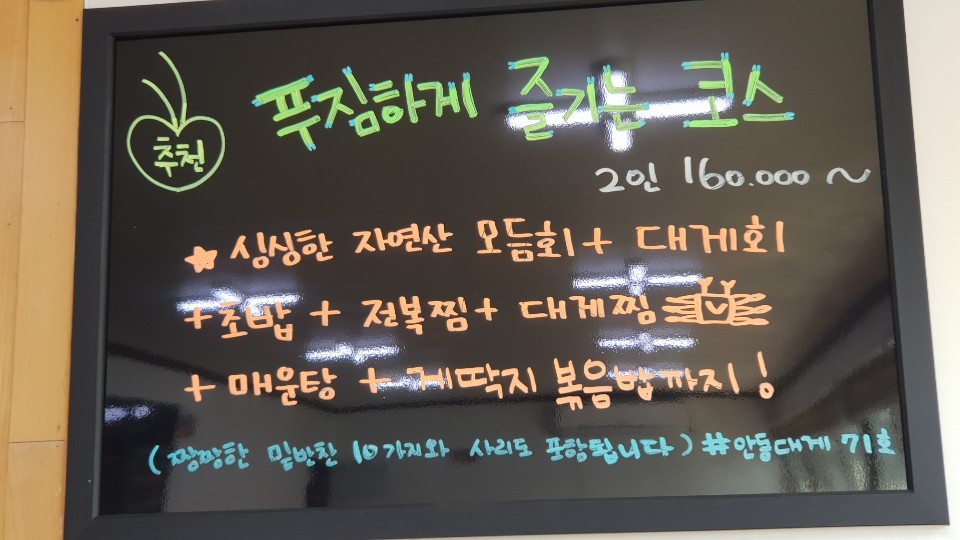 추천
푸짐하게 즐기는 코스
2인 160.000 ~
★ 싱싱한 자연산 모듬회 + 대게회
+ 초밥 + 전복찜 + 대게찜
+ 매운탕 + 게딱지 볶음밥까지!
( 짱짱한 밑반찬 10가지와 사리도 포함됩니다 ) #안동대게 71호